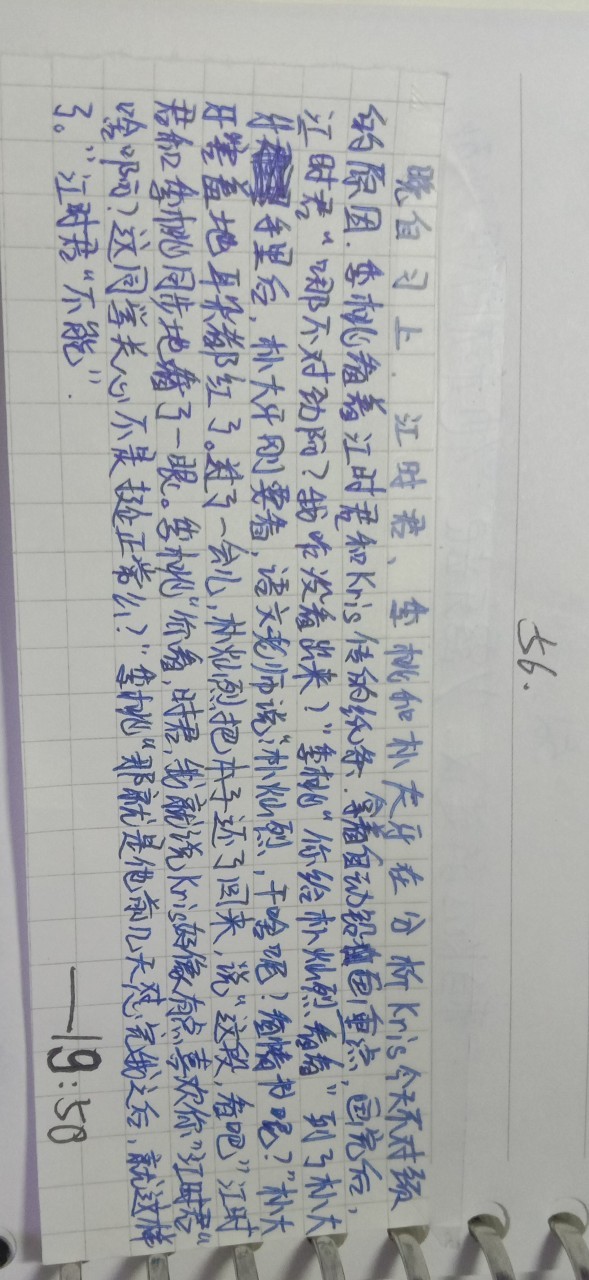 56.
晚自习上，江时君、李桃和朴大牙在分析Kris今天不对频
的原因。李桃看着江时君和Kris传的纸条，拿着自动铅画重点，画完后，
江时君“哪不对劲阿？我咋没看出来？”李桃“你给朴灿烈看看”到了朴大
牙手里后，朴大牙刚要看，语文老师说“朴灿烈，干啥呢？看情书呢？”朴大
牙害羞地耳朵都红了。过了一会儿，朴灿烈把本子还了回来，说“这段，看吧”江时
君和李桃同步地看了一眼。李桃“你看，时君，我就说Kris好像有点喜欢你”江时君“
啥啊？这同学关心不是挺正常么？”李桃“那就是他前几天怼完我之后，就这样
了。”江时君“不能”.
—19:50